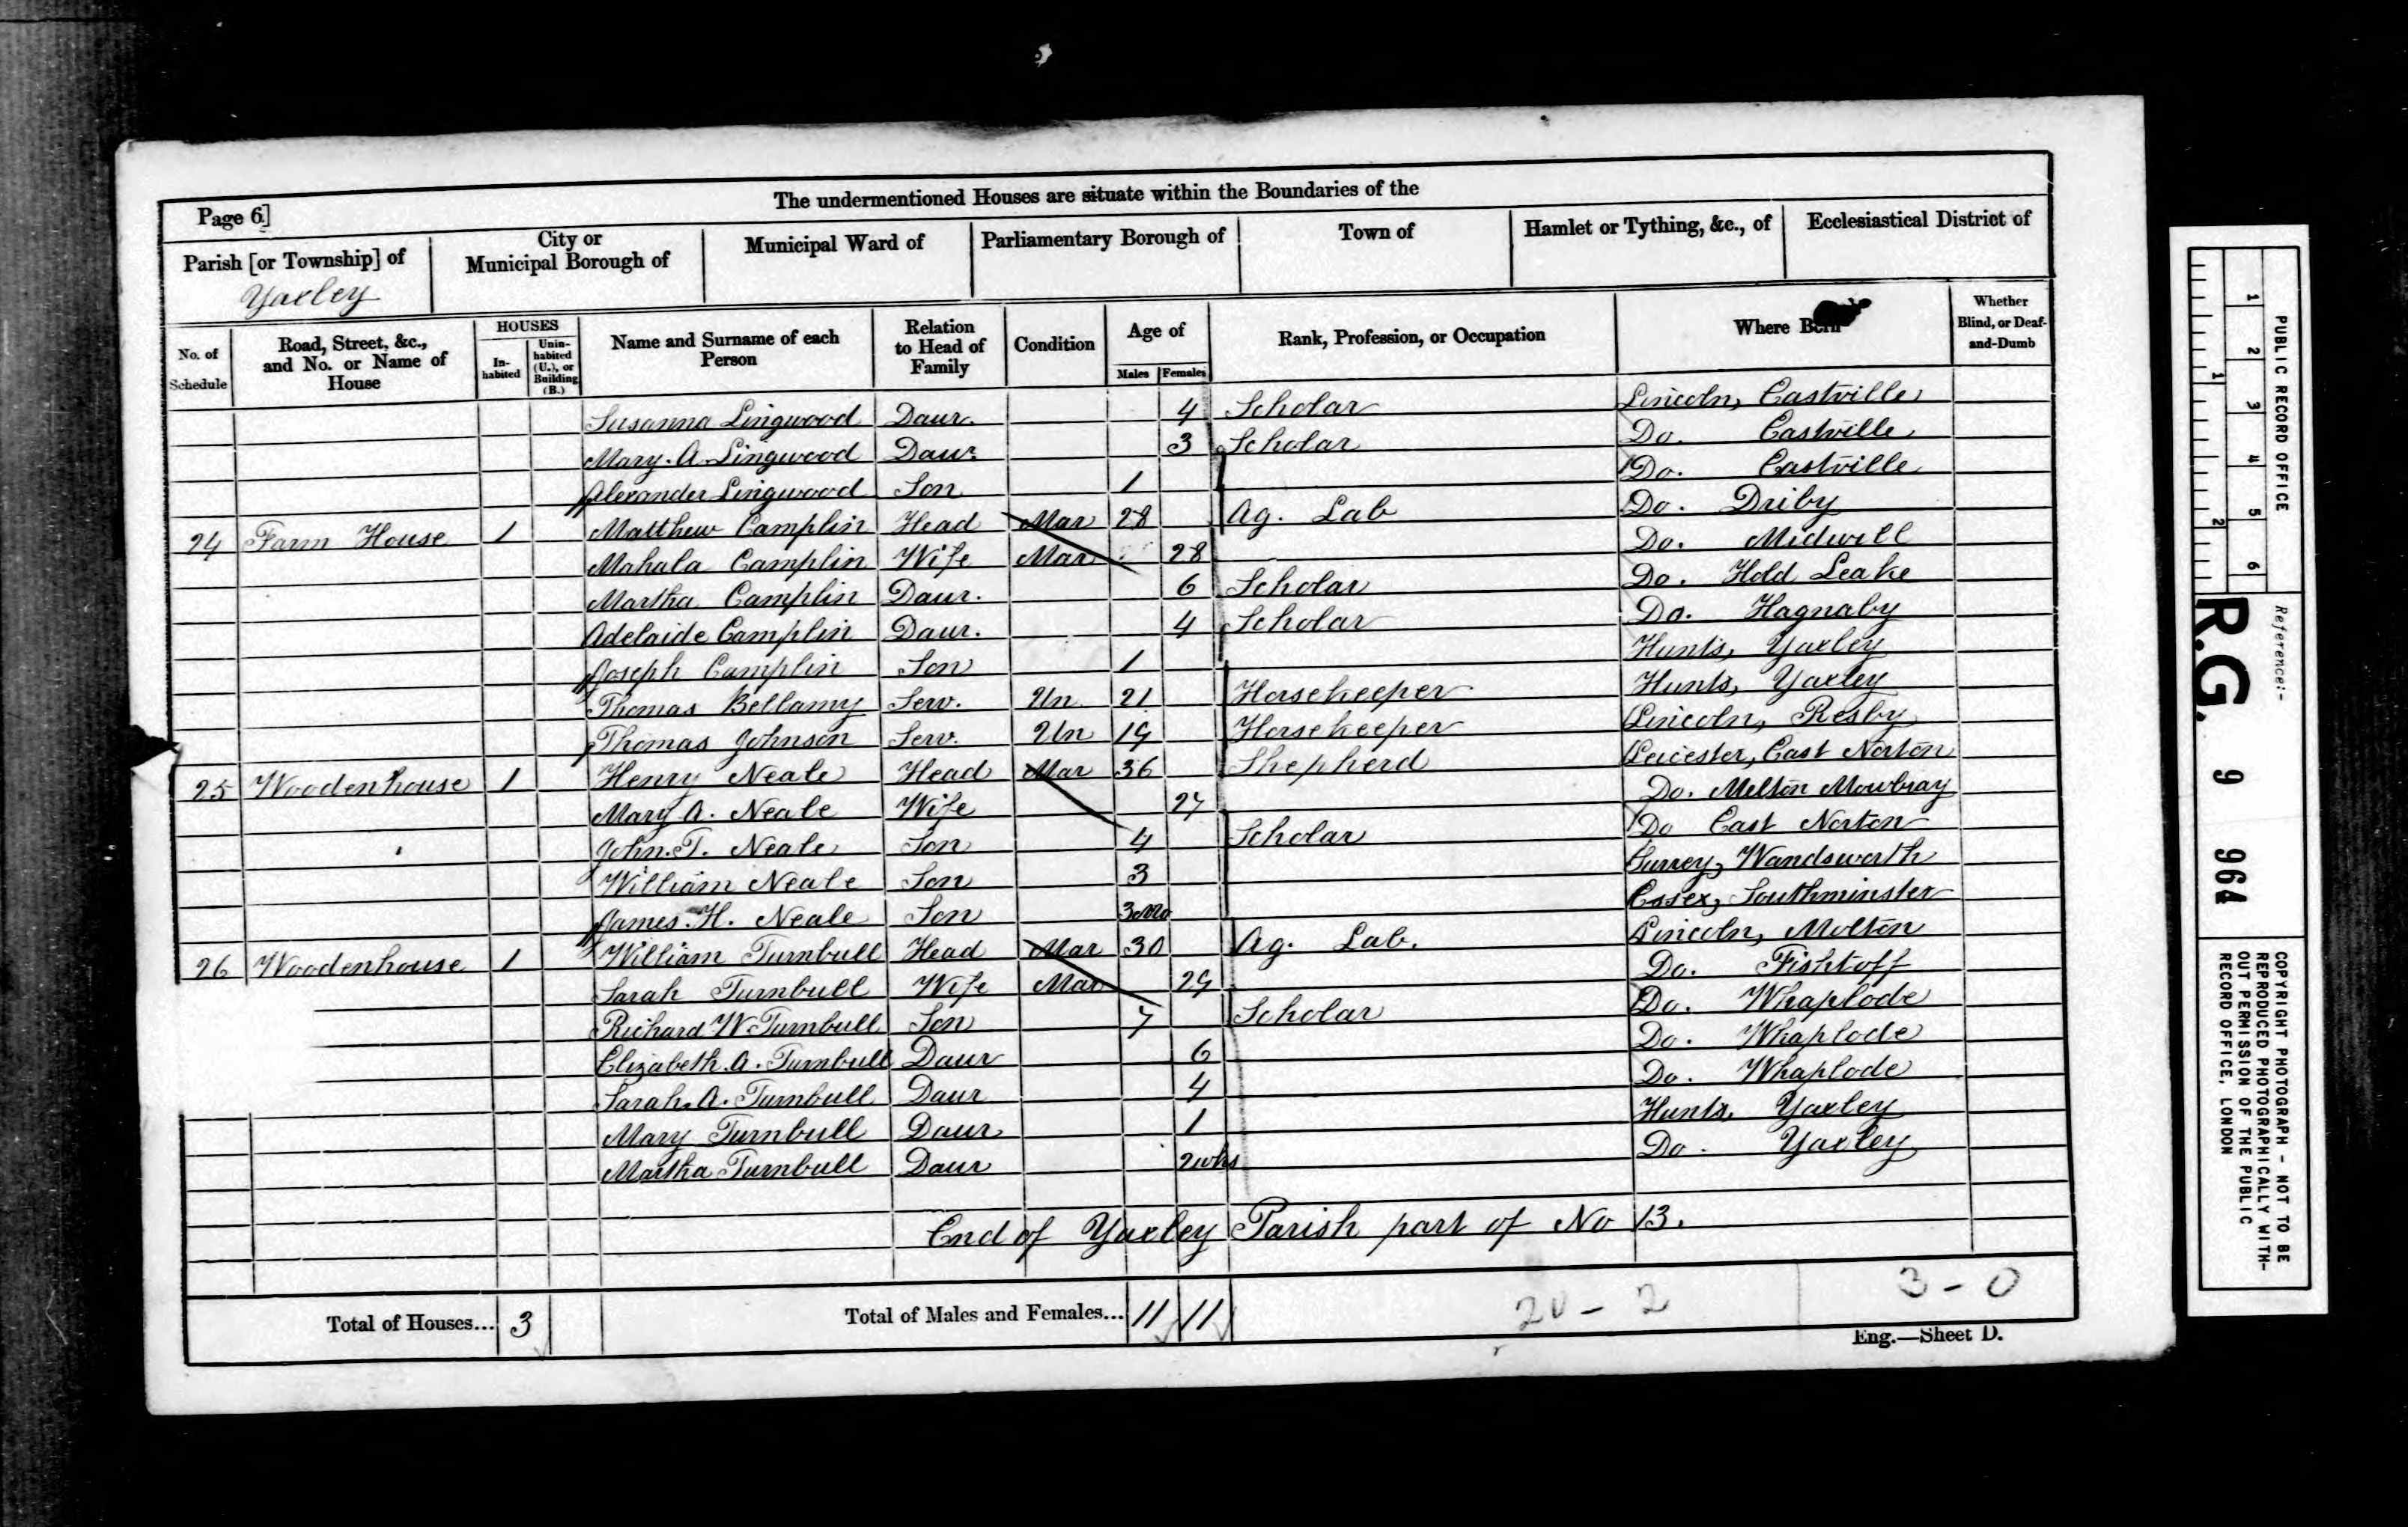 The undermentioned Houses are situate within the Boundaries of the
Page 6]
Parish [or Township] of
City or Municipal Borough of
Municipal Ward of
Parliamentary Borough of
Town of
Hamlet or Tything, &c., of
Ecclesiastical District of
Yaxley
No. of Schedule
Road, Street, &c., and No. or Name of House
HOUSES
In-habited
Unin-habited (U.), or Building (B.)
Name and Surname of each Person
Relation to Head of Family
Condition
Age of
Males
Females
Rank, Profession, or Occupation
Where Born
Whether Blind, or Deaf-and-Dumb
Susanna Lingwood Daur. 4 Scholar Lincoln, Eastville
Mary. A. Lingwood Daur. 3 Scholar Do. Eastville
Alexander Lingwood Son 1 Do. Eastville
24 Farm House 1 Matthew Camplin Head Mar 28 Ag. Lab Do. Driby
Mahala Camplin Wife Mar 28 Do. Midwill
Martha Camplin Daur. 6 Scholar Do. Hold Leake
Adelaide Camplin Daur. 4 Scholar Do. Hagnaby
Joseph Camplin Son 1 Hunts, Yaxley
Thomas Bellamy Serv. Un 21 Horsekeeper Hunts, Yaxley
Thomas Johnson Serv. Un 19 Horsekeeper Lincoln, Resby
25 Woodenhouse 1 Henry Neale Head Mar 36 Shepherd Leicester, East Norton
Mary A. Neale Wife 27 Do. Melton Mowbray
John. T. Neale Son 4 Scholar Do East Norton
William Neale Son 3 Surrey, Wandsworth
James. H. Neale Son 3mo Essex, Southminster
26 Woodenhouse 1 William Turnbull Head Mar 30 Ag. Lab. Lincoln, Molton
Sarah Turnbull Wife Mar 29 Do. Fishtoff
Richard W Turnbull Son 7 Scholar Do. Whaplode
Elizabeth. A. Turnbull Daur 6 Do. Whaplode
Sarah. A. Turnbull Daur 4 Do. Whaplode
Mary Turnbull Daur 1 Hunts, Yaxley
Martha Turnbull Daur 2wks Do. Yaxley
End of Yaxley Parish part of No 13.
Total of Houses... 3
Total of Males and Females... 11 11
20 - 2
3 - 0
Eng.—Sheet D.
1 2 3 4 5 6
1 2
PUBLIC RECORD OFFICE
Reference:-
R.G. 9 964
COPYRIGHT PHOTOGRAPH - NOT TO BE
REPRODUCED PHOTOGRAPHICALLY WITH-
OUT PERMISSION OF THE PUBLIC
RECORD OFFICE, LONDON